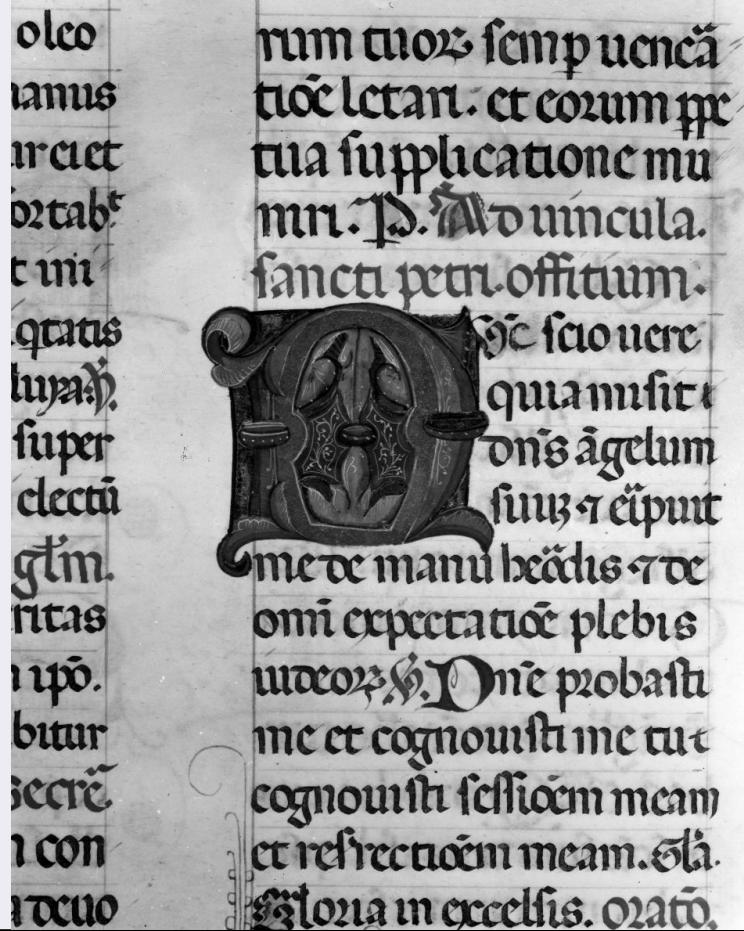 oleo
manus
ur ei et
fortab't
t mi
qtatis
luya. V.
super
electū
glm.
ritas
n ipō.
bitur
secrē
n con
a deuo
rum tuoꝝ semp uenerā
tiōe letari. et eorum ppe
tua supplicatione mu
niri. P. Ad uincula.
sancti petri. offitium.
Nūc scio uere
quia misit
dn̄s āgelum
suuȝ ⁊ eripuit
me de manu herōdis ⁊ de
omī expectatiōe plebis
iudeoꝝ V. Dn̄e probasti
me et cognouisti me tu
cognouisti sessiōem meam
et resrectiōem meam. Gl̄a.
Gloria in excelsis. oratō.